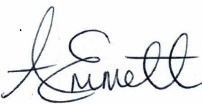 A Emmett